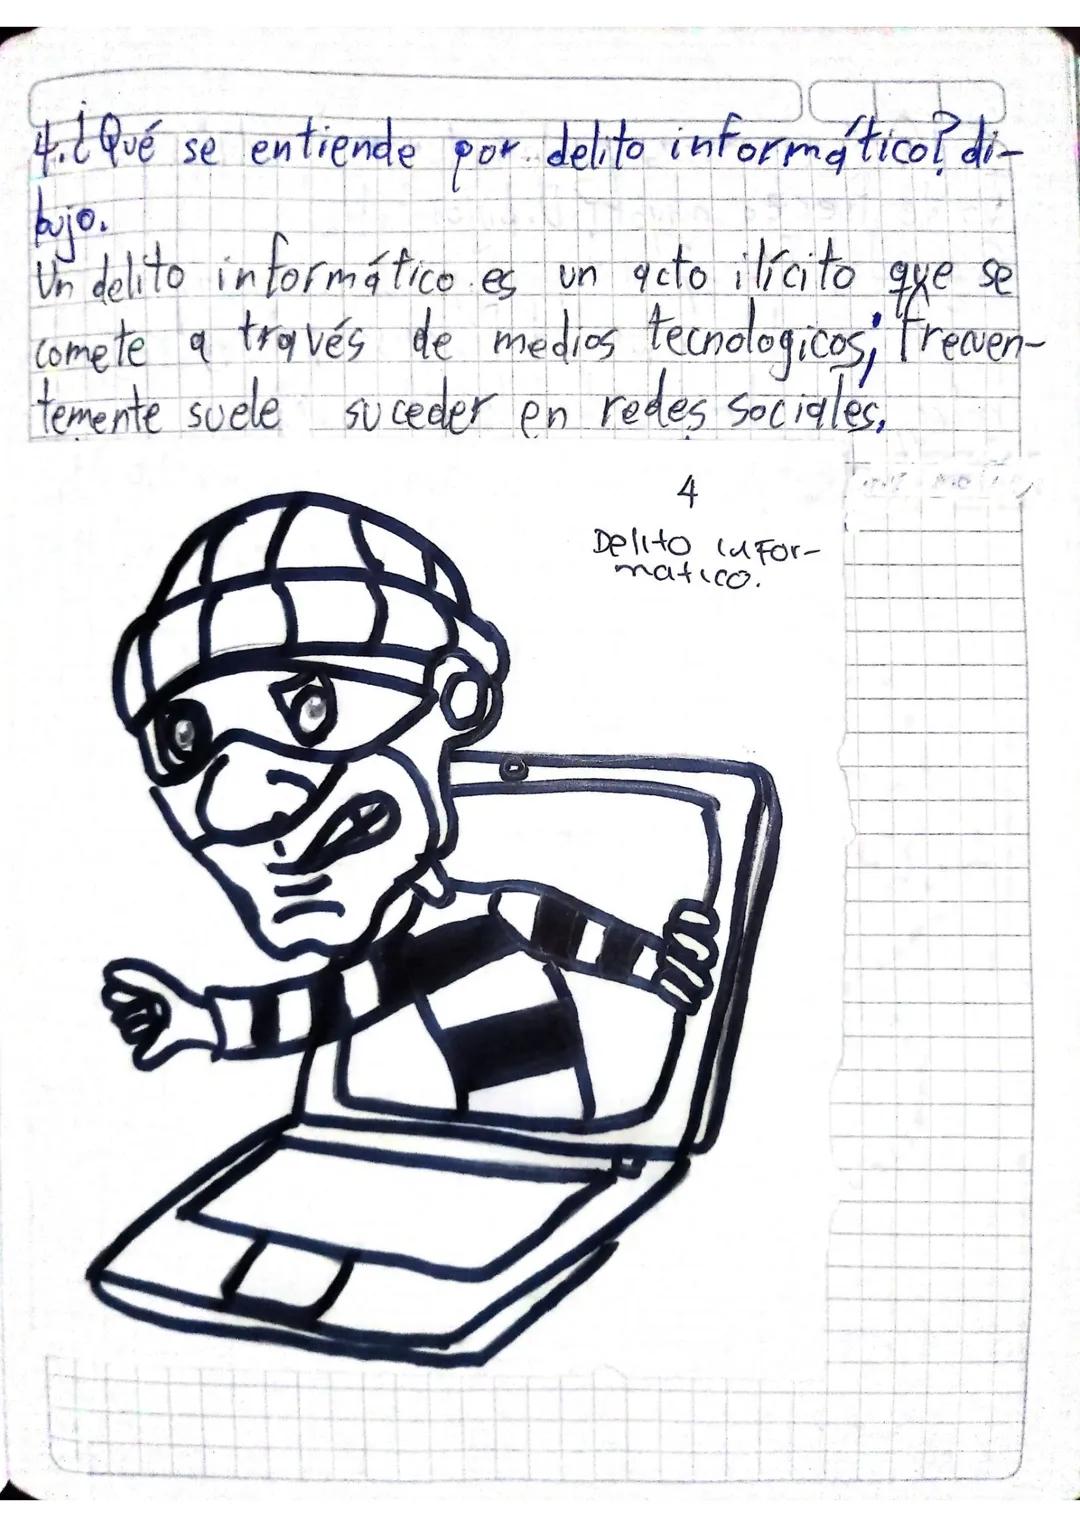 4.¿Qué se entiende por delito informático? di-
bujo.
Un delito informático es un acto ilícito que se
comete a través de medios tecnologicos; frecuen-
temente suele suceder en redes sociales.
4
Delito infor-
matico.